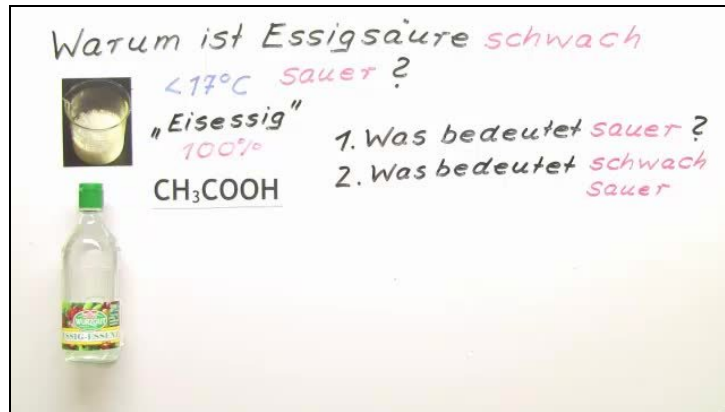 Warum ist Essigsäure schwach
sauer?
<17°C
„Eisessig"
100%
CH₃COOH
1. Was bedeutet sauer?
2. Was bedeutet schwach
sauer